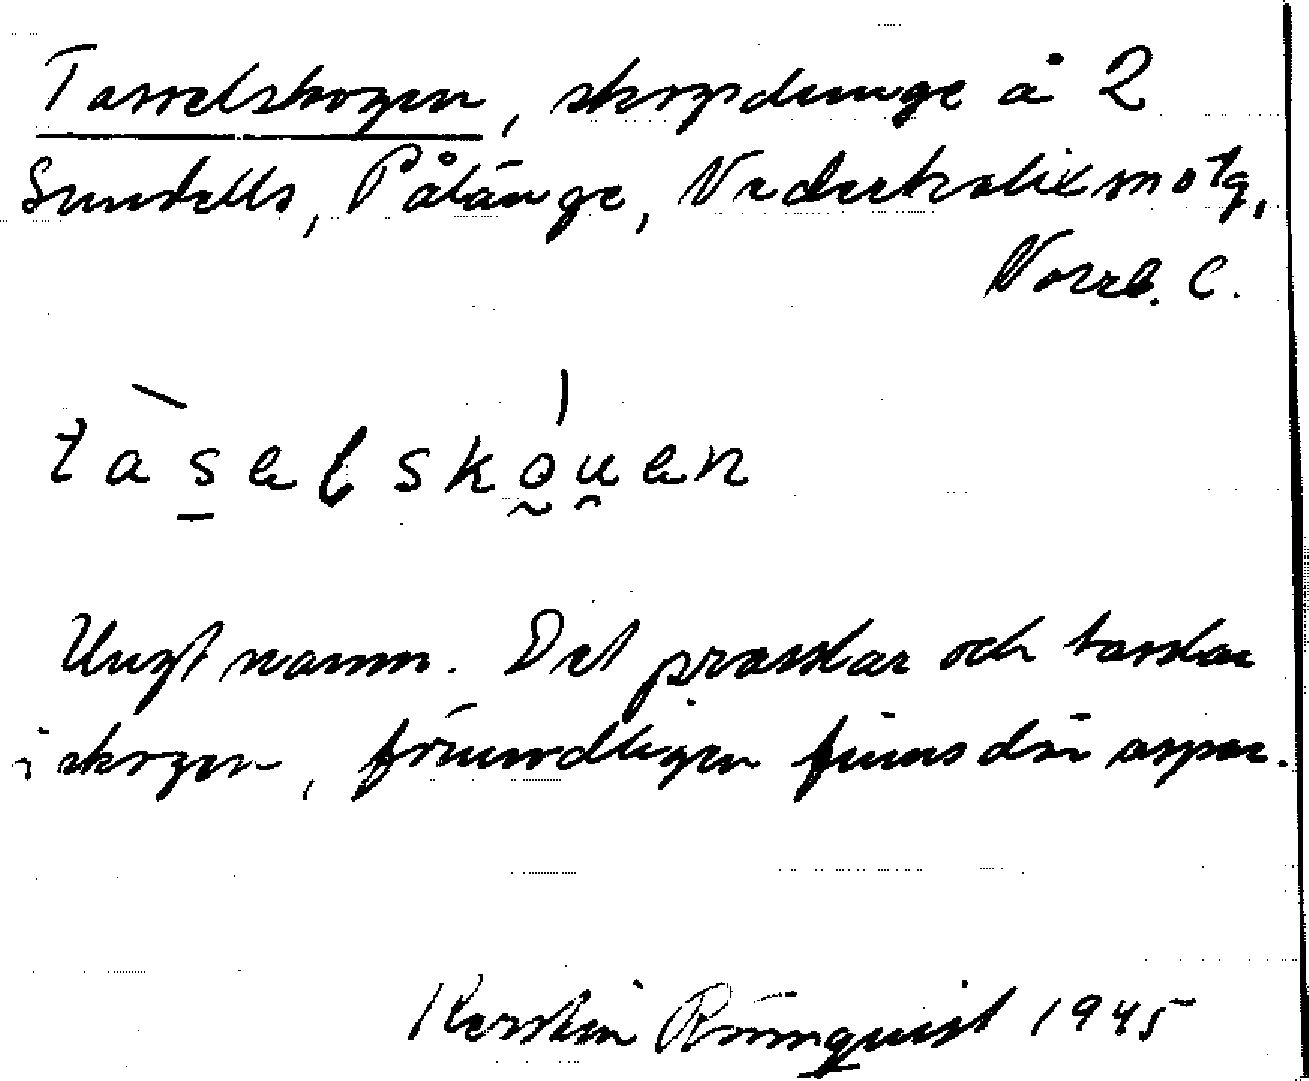 Tasselskogen, skogsdunge å 2
Sundells, Pålänge, Nederkalix sn o tg,
Norrb. C.
tasel skouen
Ungt namn. Det prasslar och tasslar
i skogen, förmodligen finns där aspar.
Kerstin Rönnquist 1945